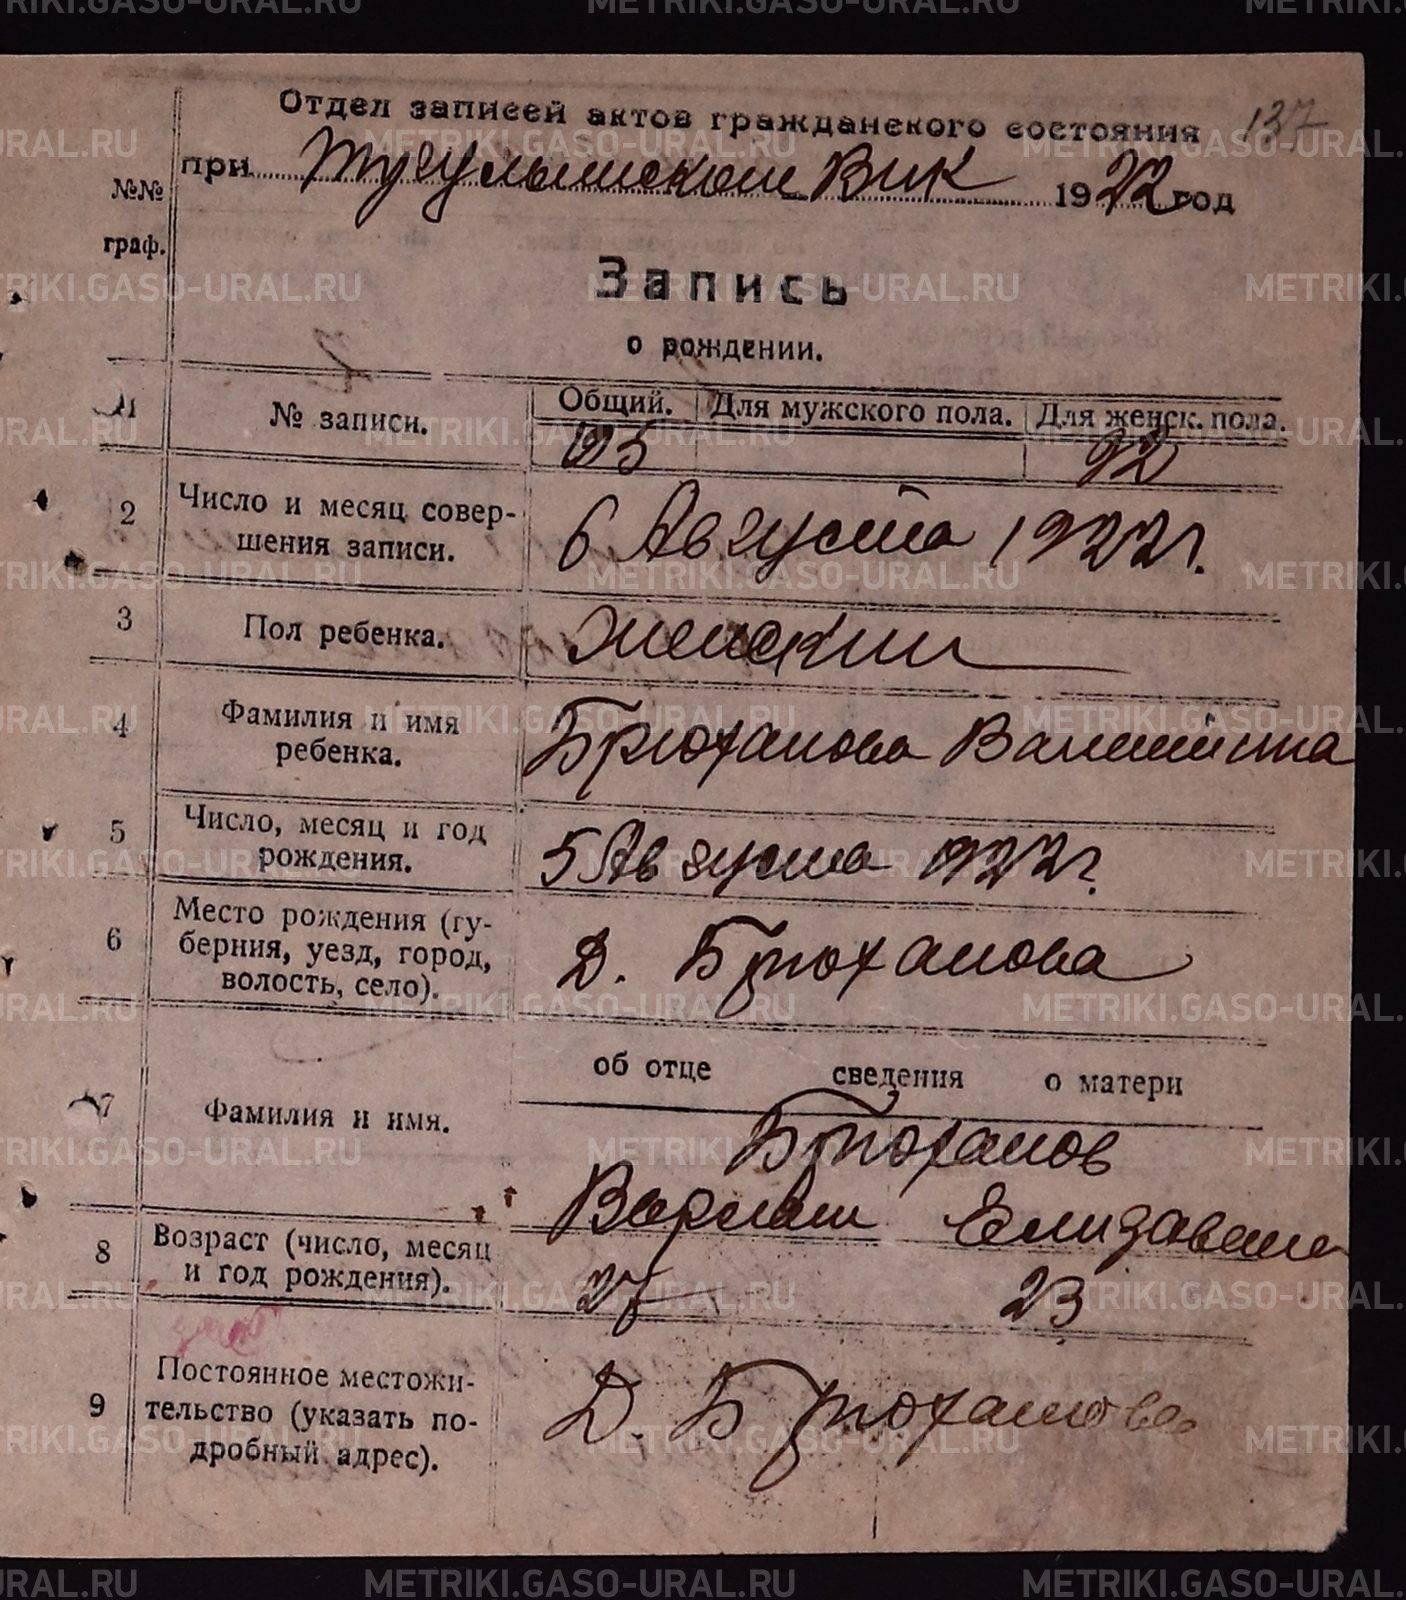 Отдел записей актов гражданского состояния 137
при Тугулымском Вик 1922 год
№№
граф.
Запись
о рождении.
1 № записи. Общий. Для мужского пола. Для женск. пола.
195 92
2 Число и месяц совер-
шения записи. 6 Августа 1922 г.
3 Пол ребенка. Женский
4 Фамилия и имя
ребенка. Брюханова Валентина
5 Число, месяц и год
рождения. 5 Августа 1922 г.
6 Место рождения (гу-
берния, уезд, город,
волость, село). Д. Брюханова
об отце сведения о матери
7 Фамилия и имя. Брюханов
Варлам Елизавета
8 Возраст (число, месяц
и год рождения). 27 23
9 Постоянное местожи-
тельство (указать по-
дробный адрес). Д. Брюханова
METRIKI.GASO-URAL.RU